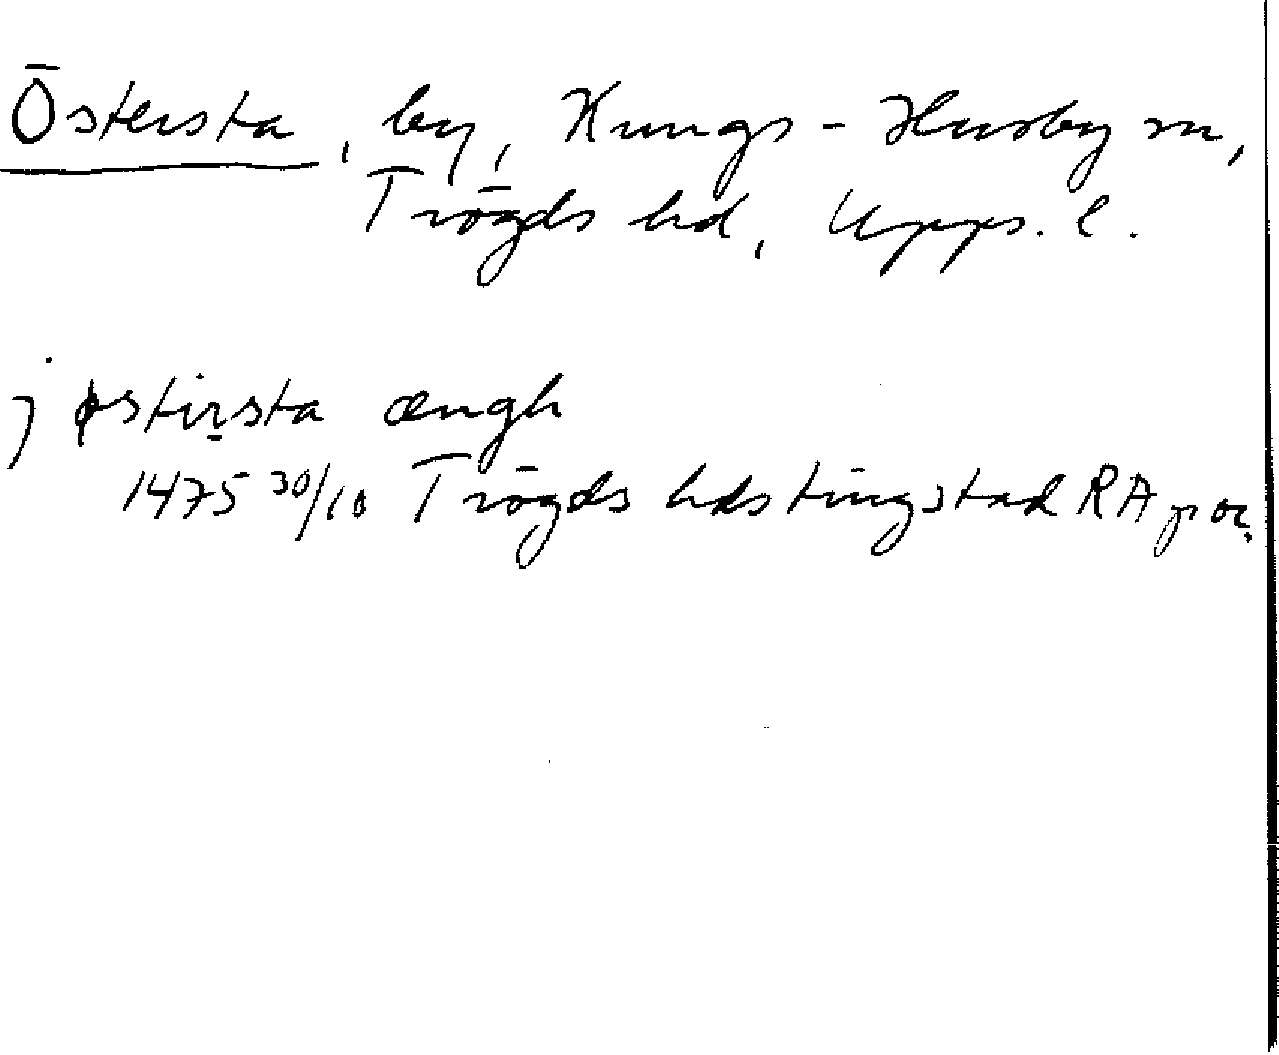 Östersta, by, Kungs-Husby sn,
Trögds hd, Upps. l.
j østirsta ængh
1475 30/10 Trögds hds tingstad RA por.